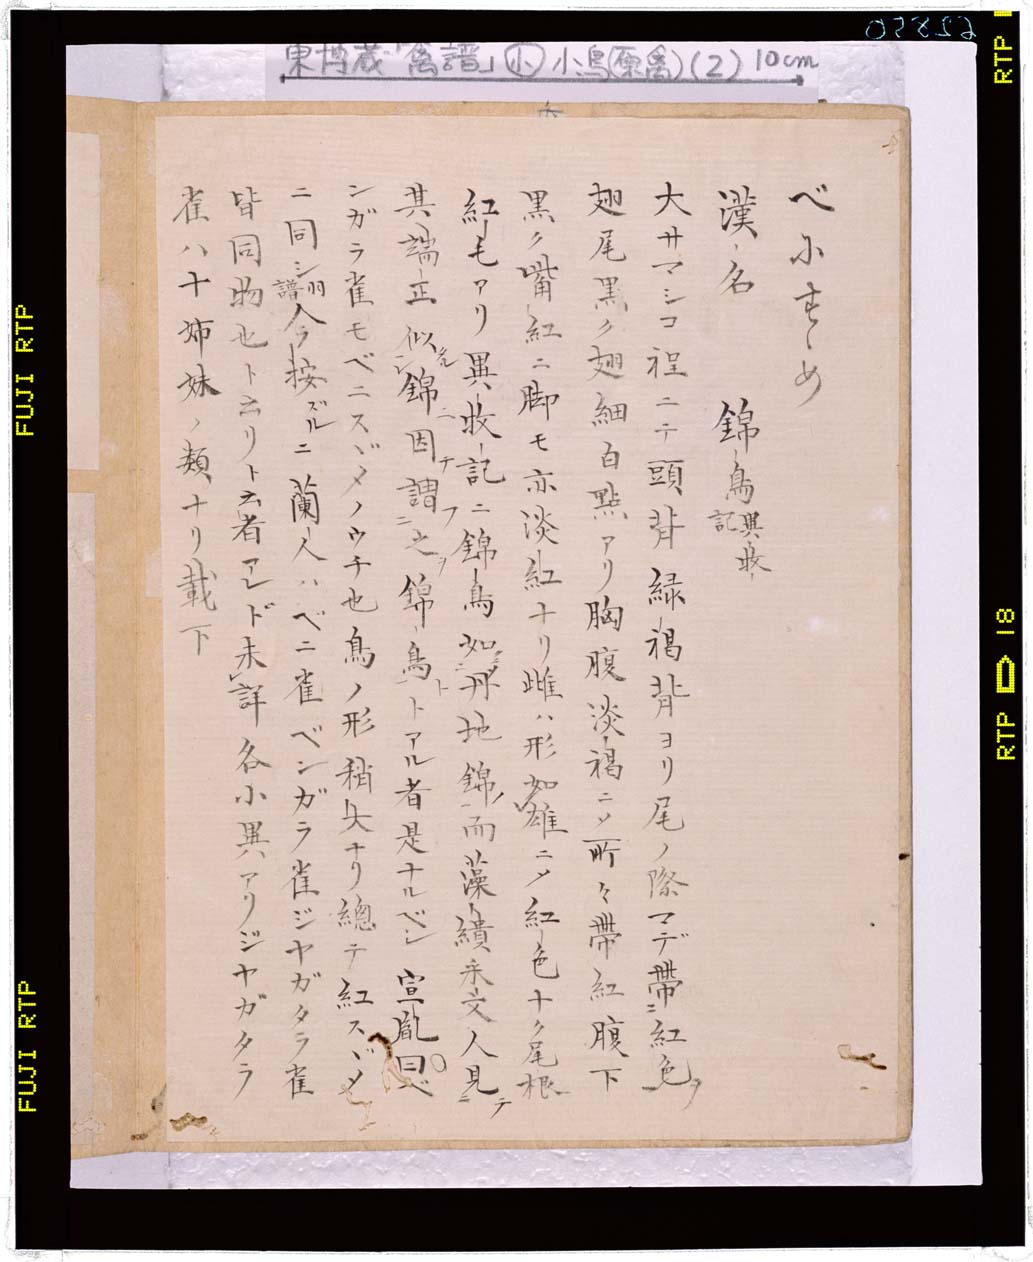 62850
東博蔵「禽譜」小 小鳥(原禽)(2) 10cm
べにすゞめ
漢名 錦鳥 異收記
大サマシコ程ニテ頭背緑褐背ヨリ尾ノ際マデ帯紅色ヲ
翅尾黒ク翅細白點アリ胸腹淡褐ニメ所々帯紅腹下
黒ク嘴紅ニ脚モ亦淡紅ナリ雌ハ形如雄ニメ紅色ナク尾根
紅毛アリ異收記ニ錦鳥如丹地錦而藻繢釆文人見
其端正似錦因謂之錦鳥トアル者是ナルベシ 宣胤曰ベ
ンガラ雀モベニスヾメノウチ也鳥ノ形稍大ナリ總テ紅スヾメ
ニ同シ羽譜今按ズルニ蘭人ハベニ雀ベンガラ雀ジヤガタラ雀
皆同物也ト云リト云者アレド未詳各小異アリジヤガタラ
雀ハ十姉妹ノ類ナリ載下
FUJI RTP
FUJI RTP
RTP
RTP 18